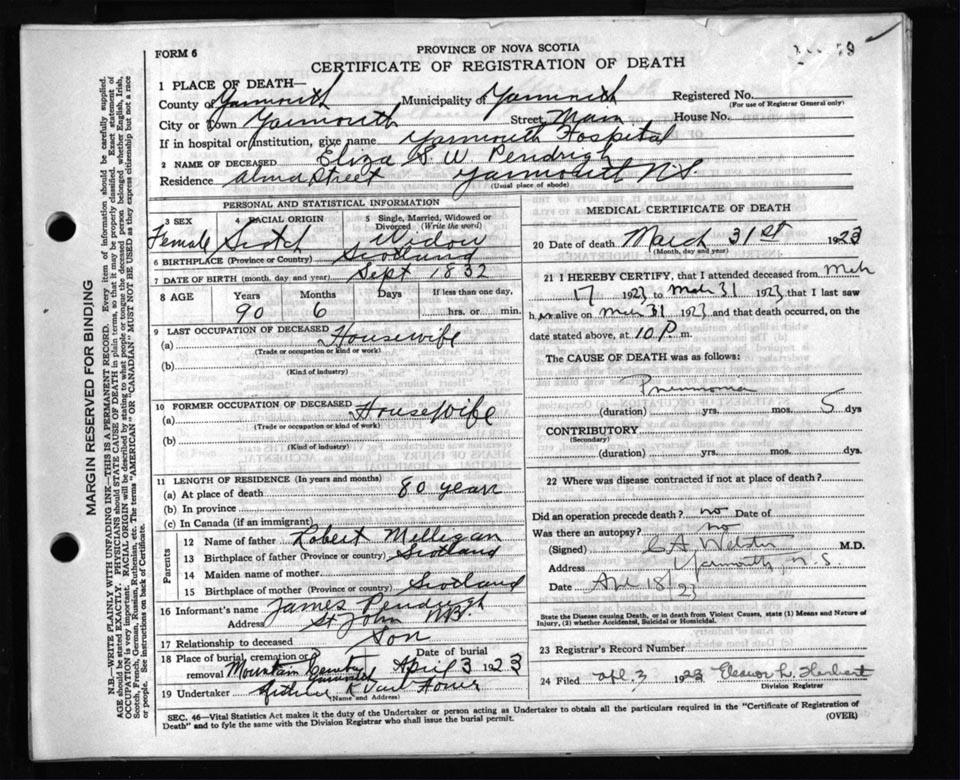 FORM 6
PROVINCE OF NOVA SCOTIA
CERTIFICATE OF REGISTRATION OF DEATH
1 PLACE OF DEATH—
County of Yarmouth Municipality of Yarmouth Registered No.
(For use of Registrar General only)
City or Town Yarmouth Street Main House No.
If in hospital or institution, give name Yarmouth Hospital
2 NAME OF DECEASED Eliza S. W. Pendrigh
Residence Alma Street Yarmouth N.S.
(Usual place of abode)
PERSONAL AND STATISTICAL INFORMATION
3 SEX 4 RACIAL ORIGIN 5 Single, Married, Widowed or Divorced (Write the word)
Female Scotch Widow
6 BIRTHPLACE (Province or Country) Scotland
7 DATE OF BIRTH (month, day and year) Sept 1832
8 AGE Years Months Days If less than one day,
90 6 hrs. or min.
9 LAST OCCUPATION OF DECEASED
(a) Housewife
(Trade or occupation or kind or work)
(b)
(Kind of industry)
10 FORMER OCCUPATION OF DECEASED
(a) Housewife
(Trade or occupation or kind of work)
(b)
(Kind of industry)
11 LENGTH OF RESIDENCE (In years and months)
(a) At place of death 80 year
(b) In province
(c) In Canada (if an immigrant)
Parents
12 Name of father Robert Milligan
13 Birthplace of father (Province or country) Scotland
14 Maiden name of mother
15 Birthplace of mother (Province or country) Scotland
16 Informant's name James Pendrigh
Address St John NB.
17 Relationship to deceased Son
18 Place of burial, cremation or removal Mountain Cemetery Date of burial April 3 1923
19 Undertaker K Van Horne
(Name and Address)
MEDICAL CERTIFICATE OF DEATH
20 Date of death March 31st 1923
(Month, day and year)
21 I HEREBY CERTIFY, that I attended deceased from Mch
17 1923 to Mch 31 1923 that I last saw
h er alive on Mch 31 1923 and that death occurred, on
date stated above, at 10 P. m.
The CAUSE OF DEATH was as follows:
Pneumonia
(duration) yrs. mos. 5 dys
CONTRIBUTORY
(Secondary)
(duration) yrs. mos. dys.
22 Where was disease contracted if not at place of death?
Did an operation precede death? no Date of
Was there an autopsy? no
(Signed) C A Webster M.D.
Address Yarmouth, N.S.
Date Apl 18/23
State the Disease causing Death, or in death from Violent Causes, state (1) Means and Nature of Injury, (2) whether Accidental, Suicidal or Homicidal.
23 Registrar's Record Number
24 Filed apl. 3 1923 Eleanor L. Herbert
Division Registrar
SEC. 46—Vital Statistics Act makes it the duty of the Undertaker or person acting as Undertaker to obtain all the particulars required in the "Certificate of Registration of
Death" and to fyle the same with the Division Registrar who shall issue the burial permit.
(OVER)
MARGIN RESERVED FOR BINDING
N.B.—WRITE PLAINLY WITH UNFADING INK—THIS IS A PERMANENT RECORD. Every item of information should be carefully supplied.
AGE should be stated EXACTLY. PHYSICIANS should STATE CAUSE OF DEATH in plain terms, so that it may be properly classified. Exact statement of
OCCUPATION is very important. RACIAL ORIGIN will be described by stating to what people or tongue the deceased person belonged whether English, Irish,
Scotch, French, German, Russian, Ruthenian, etc. The terms "AMERICAN" OR "CANADIAN" MUST NOT BE USED as they express citizenship but not a race
or people. See instructions on back of Certificate.